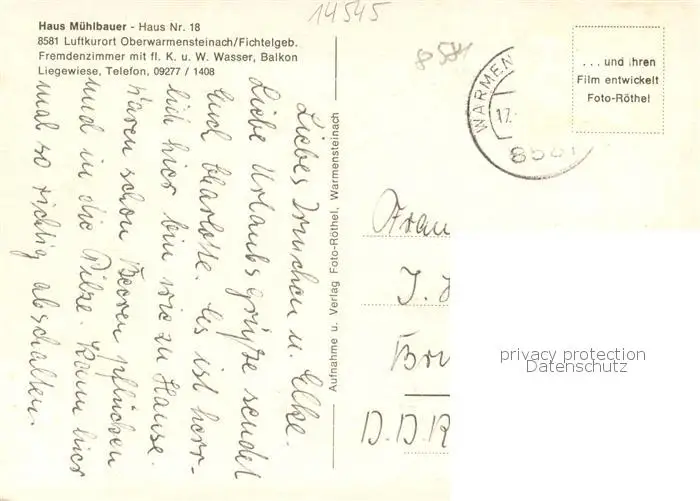 14545
Haus Mühlbauer - Haus Nr. 18
8581 Luftkurort Oberwarmensteinach/Fichtelgeb.
Fremdenzimmer mit fl. K. u. W. Wasser, Balkon
Liegewiese, Telefon, 09277 / 1408
Liebes Truschen u. Elke.
Liebe Urlaubsgrüße sendet
Euch Charlotte. Es ist herr-
lich hier bin wie zu Hause.
Waren schon Beeren pflücken
und in die Pilze. Kann hier
mal so richtig abschalten.
Aufnahme u. Verlag Foto-Röthel, Warmensteinach
8581
WARMEN
17.
8581
... und ihren
Film entwickelt
Foto-Röthel
Frau
J.
D.D.R
privacy protection
Datenschutz